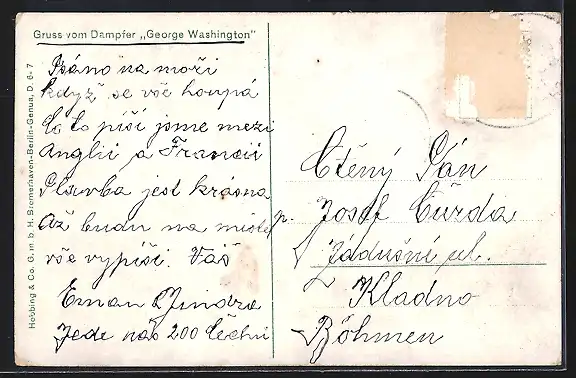 Gruss vom Dampfer „George Washington“
Psáno na moři
když se vše houpá
Co to píši jsme mezi
Anglii a Francii
Plavba jest krásna
Až budu na místě
vše vypíši. Váš
Eman Jindra
Jede nás 200 Čechů
Ctěný Pán
p. Josef Čurda
Zadušní ul.
Kladno
Böhmen
Hebbing & Co. G. m. b. H. Bremerhaven-Berlin-Genua, D. 6-7